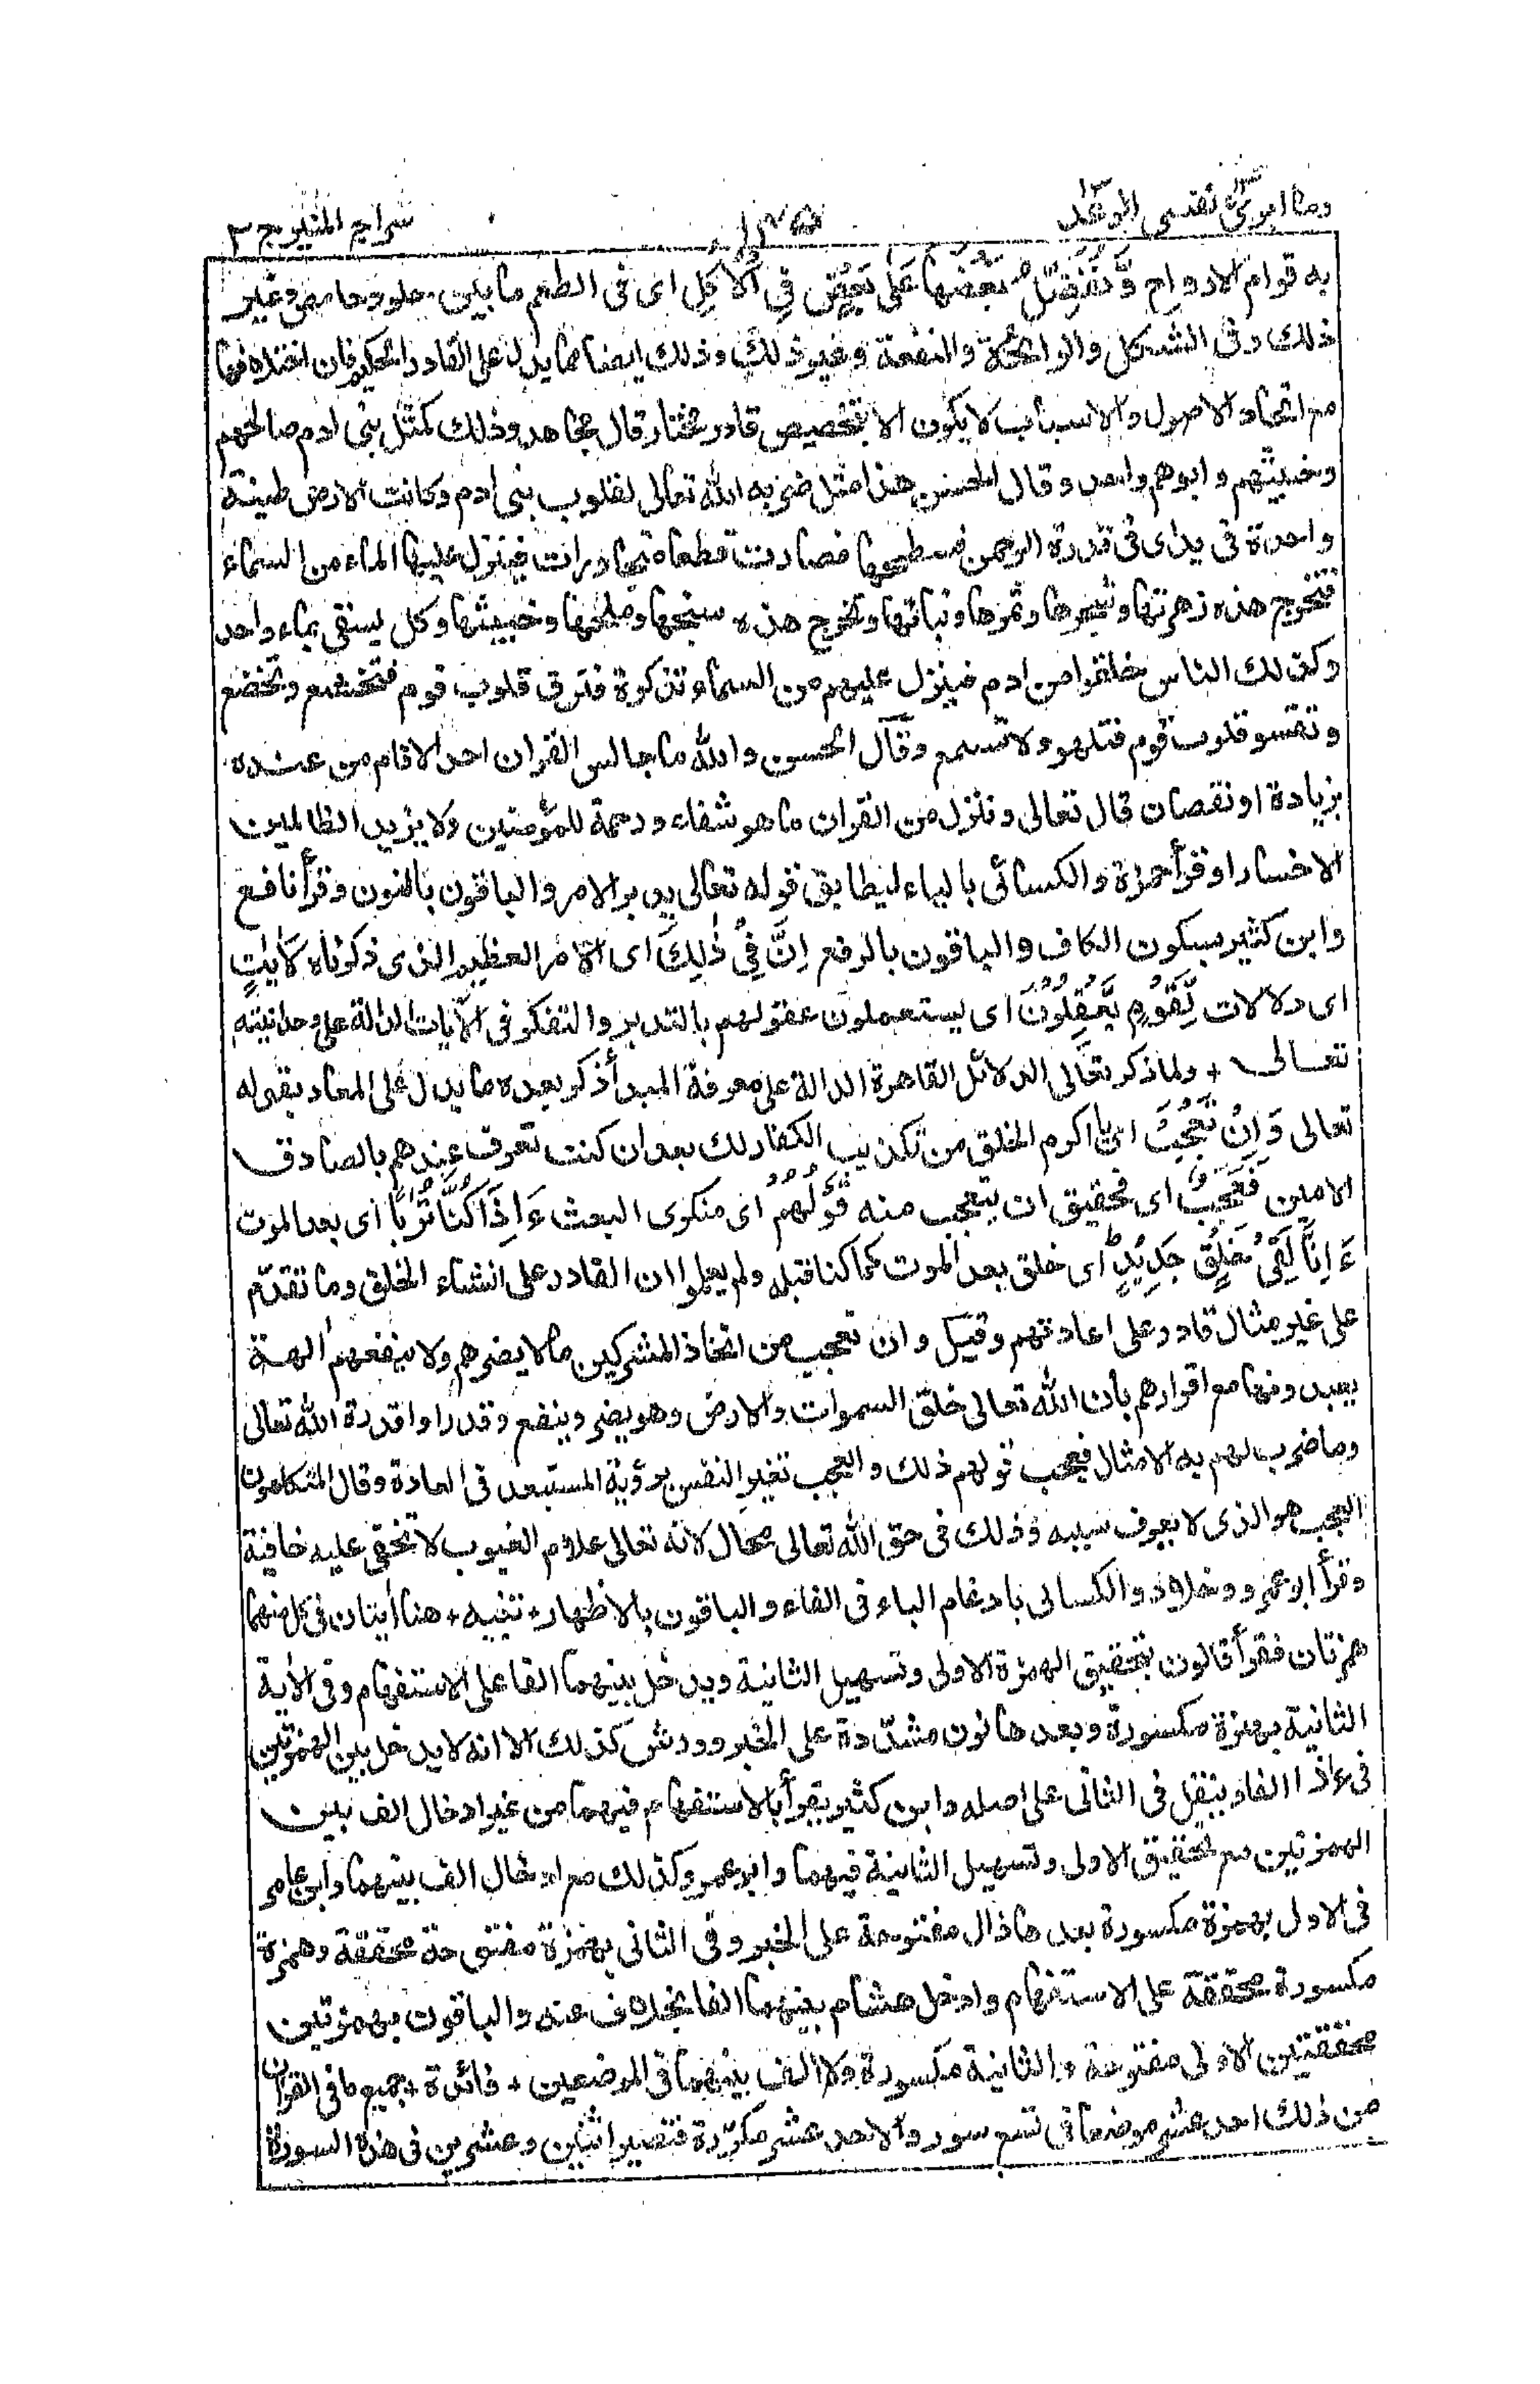 وما ابرئ نفسى الرعد ١٣ سراج المنير ج ٣
به قوام الارواح وَّنُفَضِّلُ بَعْضَهَا عَلٰى بَعْضٍ فِى الْاُكُلِ اى فى الطعم ما بين حلو وحامض وغير
ذلك وفى الشكل والرائحة والمنفعة وغير ذلك وذلك ايضا مما يدل على القادر الحكيم فان اختلافها
مع اتحاد الاصول والاسباب لا يكون الا بتخصيص قادر مختار قال مجاهد وذلك كمثل بنى ادم صالحهم
وخبيثهم وابوهم واحد وقال الحسن هذا مثل ضربه الله تعالى لقلوب بنى ادم وكانت الارض طينة
واحدة فى يد اى فى قدرة الرحمن فسطحها فصارت قطعا متجاورات فينزل عليها الماء من السماء
فتخرج هذه زهرتها وشجرها وثمرها ونباتها وتخرج هذه سبخها وملحها وخبيثها وكل يسقى بماء واحد
وكذلك الناس خلقوا من ادم فينزل عليهم من السماء تذكرة فترق قلوب قوم فتخشع وتخضع
وتقسو قلوب قوم فتلهو ولا تسمع وقال الحسن والله ما جالس القران احد الا قام من عنده
بزيادة او نقصان قال تعالى وننزل من القران ما هو شفاء ورحمة للمؤمنين ولا يزيد الظالمين
الا خسارا وقرأ حمزة والكسائى بالياء ليطابق قوله تعالى يدبر الامر والباقون بالنون وقرأ نافع
وابن كثير بسكون الكاف والباقون بالرفع اِنَّ فِىْ ذٰلِكَ اى الامر العظيم الذى ذكرناه لَاٰيٰتٍ
اى دلالات لِّقَوْمٍ يَّعْقِلُوْنَ اى يستعملون عقولهم بالتدبر والتفكر فى الآيات الدالة على وحدانيته
تعالى + ولما ذكر تعالى الدلائل القاهرة الدالة على معرفة المبدأ ذكر بعده ما يدل على المعاد بقوله
تعالى وَاِنْ تَعْجَبْ اى يا اكرم الخلق من تكذيب الكفار لك بعد ان كنت تعرف عندهم بالصادق
الامين فَعَجَبٌ اى فحقيق ان يتعجب منه قَوْلُهُمْ اى منكرى البعث ءَاِذَا كُنَّا تُرٰبًا اى بعد الموت
ءَاِنَّا لَفِىْ خَلْقٍ جَدِيْدٍ اى خلق بعد الموت كما كنا قبله ولم يعلموا ان القادر على انشاء الخلق وما تقدم
على غير مثال قادر على اعادتهم وقيل وان تعجب من اتخاذ المشركين ما لا يضرهم ولا ينفعهم الهة
يعبدونها مع اقرارهم بأن الله تعالى خلق السموات والارض وهو يضر وينفع وقد راوا قدرة الله تعالى
وما ضرب لهم به الامثال فعجب قولهم ذلك والعجب تغير النفس برؤية المستبعد فى العادة وقال المتكلمون
العجب هو الذى لا يعرف سببه وذلك فى حق الله تعالى محال لانه تعالى علام الغيوب لا تخفى عليه خافية
وقرأ ابو عمرو وخلاد والكسائى بادغام الباء فى الفاء والباقون بالاظهار + تنبيه + هنا أيتان فى كل منهما
همزتان فقرأ قالون بتحقيق الهمزة الاولى وتسهيل الثانية ويدخل بينهما الفا على الاستفهام وفى الآية
الثانية بهمزة مكسورة وبعدها نون مشددة على الخبر وورش كذلك الا انه لا يدخل بين الهمزتين
فى ءاذا الفا وينقل فى الثانى على اصله وابن كثير يقرأ بالاستفهام فيهما من غير ادخال الف بين
الهمزتين مع تحقيق الاولى وتسهيل الثانية فيهما وابو عمرو كذلك مع ادخال الف بينهما وابن عامر
فى الاول بهمزة مكسورة بعدها ذال مفتوحة على الخبر وفى الثانى بهمزة مفتوحة محققة وهمزة
مكسورة محققة على الاستفهام وادخل هشام بينهما الفا بخلاف عنه والباقون بهمزتين
محققتين الاولى مفتوحة والثانية مكسورة ولا ألف بينهما فى الموضعين + فائدة + جميع ما فى القران
من ذلك احد عشر موضعا فى تسع سور والاحد عشر مكررة فتصير اثنين وعشرين فى هذه السورة